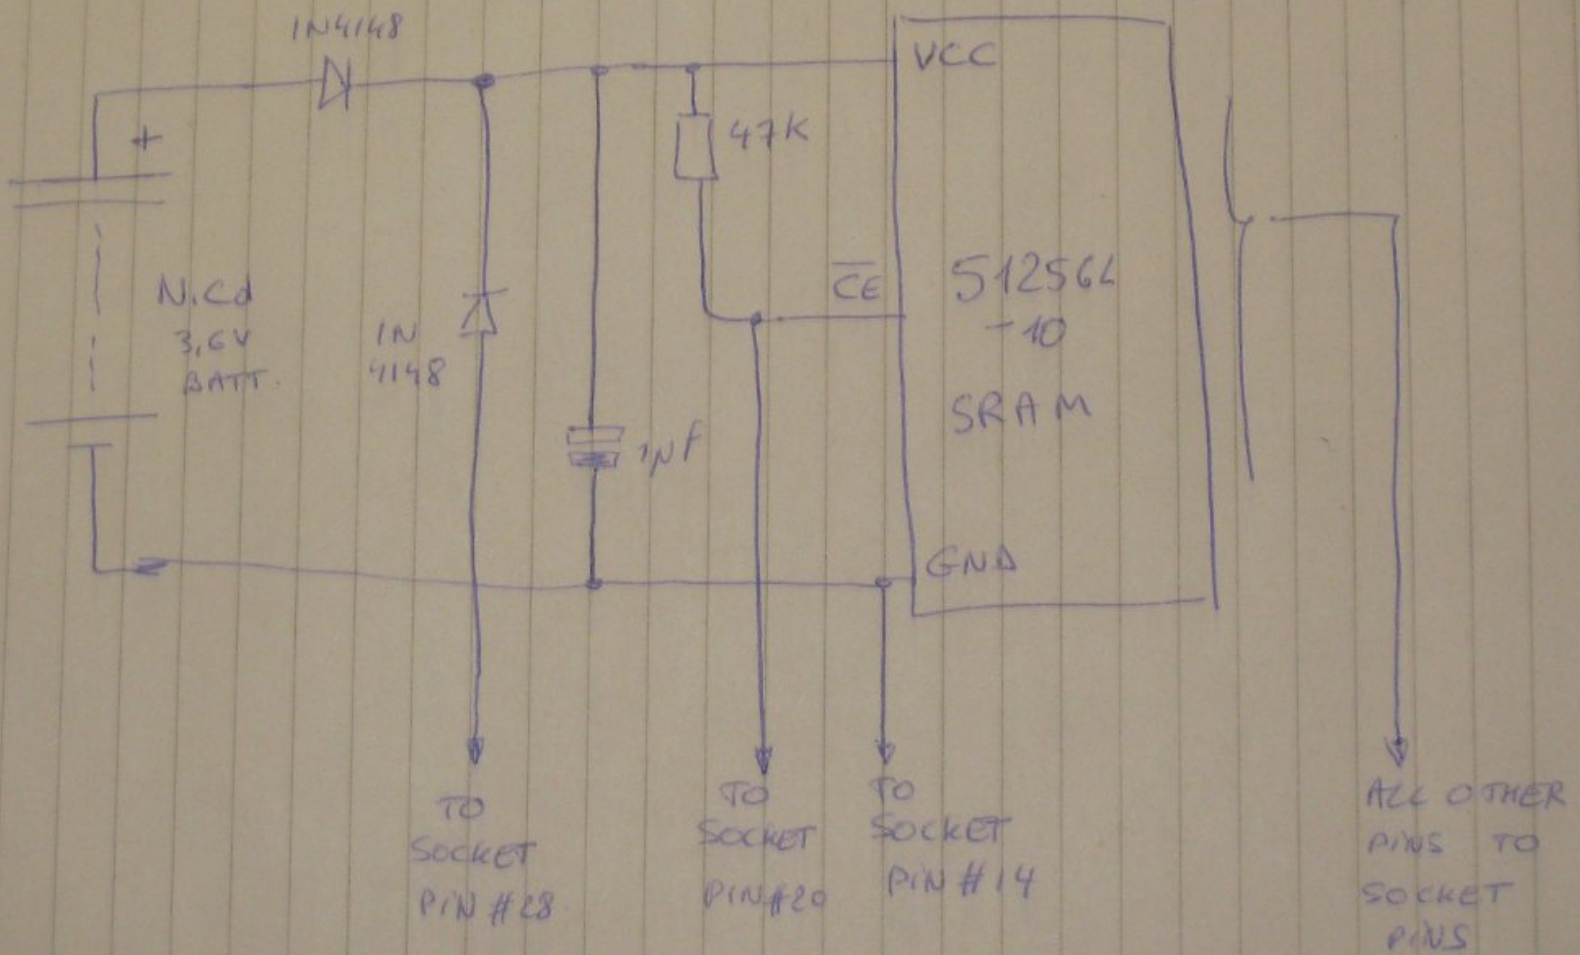 1N4148
+
VCC
47K
N.Cd
3,6V
BATT.
1N
4148
CE
51256L
-10
SRAM
1µF
GND
TO
SOCKET
PIN #28
TO
SOCKET
PIN#20
TO
SOCKET
PIN #14
ALL OTHER
PINS TO
SOCKET
PINS